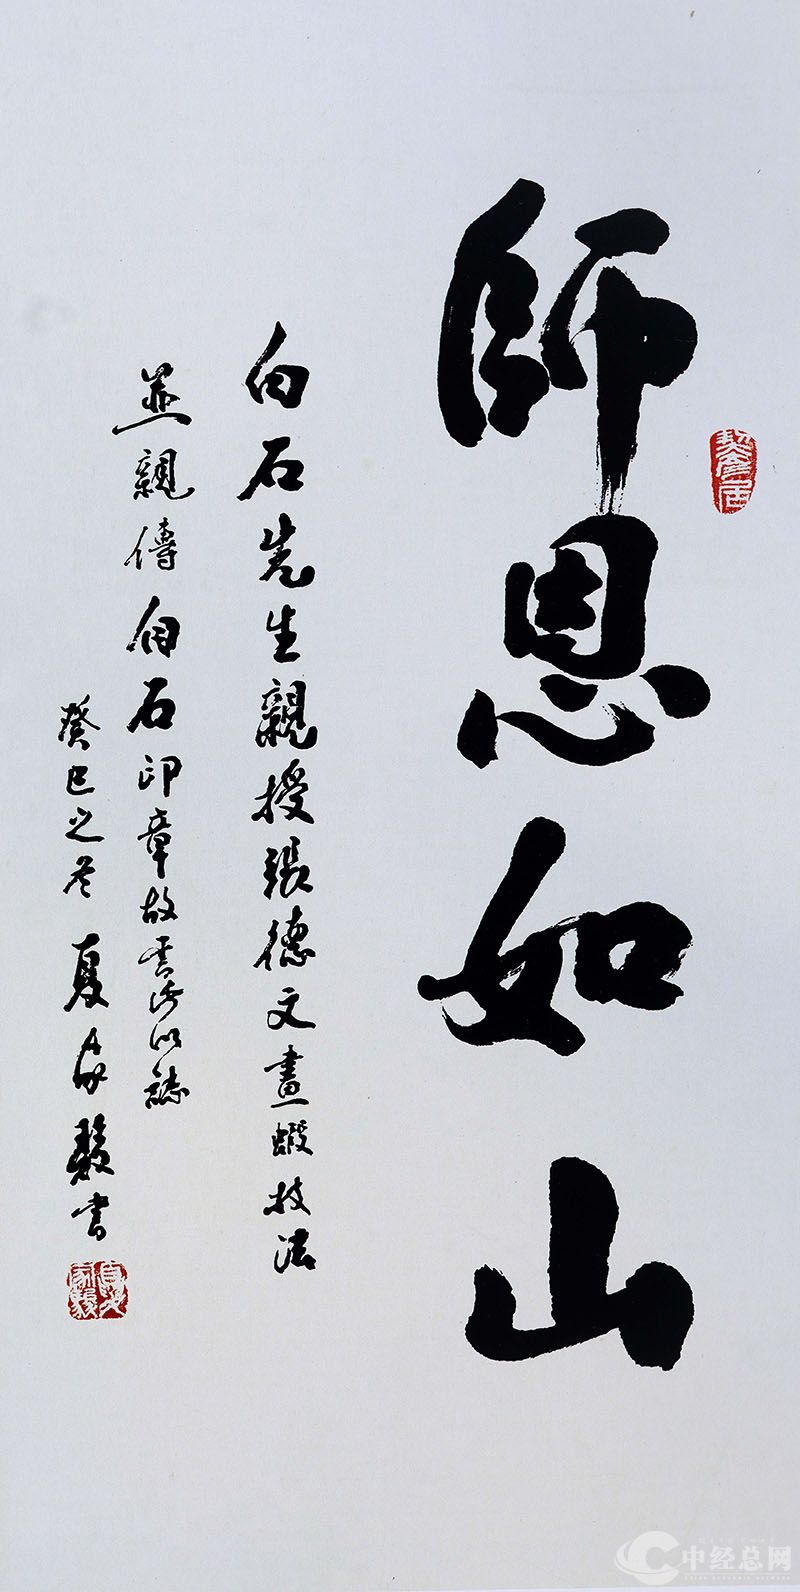 師恩如山
白石先生親授張德文畫蝦技法
並親傳白石印章故書此以誌
癸巳之冬 夏家駿書
中经总网